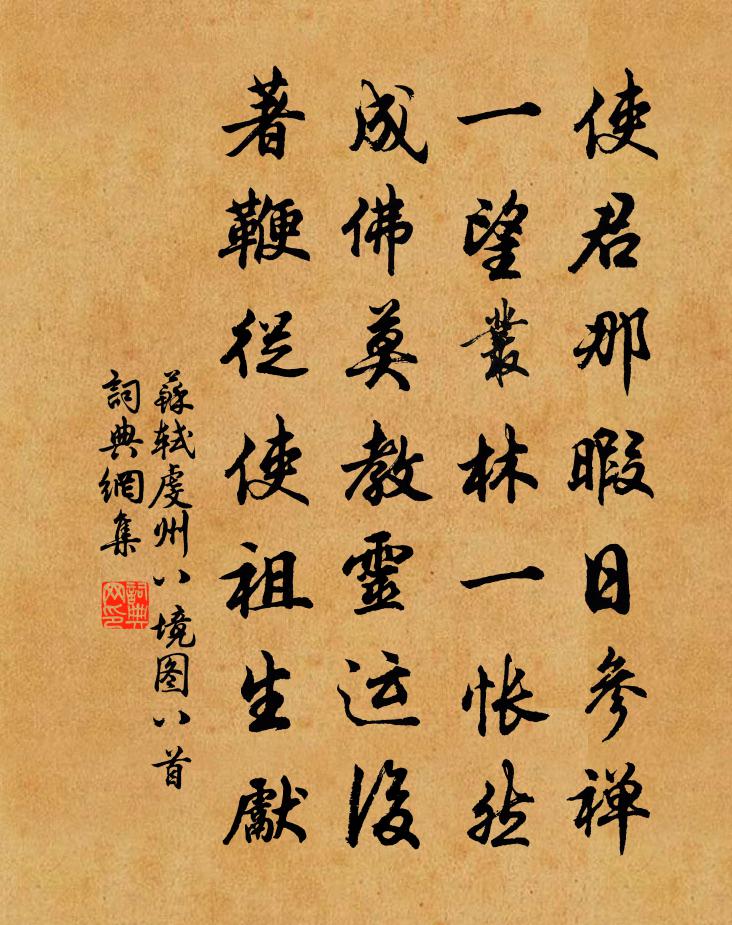 使君那暇日參禅
一望叢林一悵然
成佛莫教靈运後
著鞭從使祖生獻
蘇軾虔州八境图八首
詞典網集
詞典网印